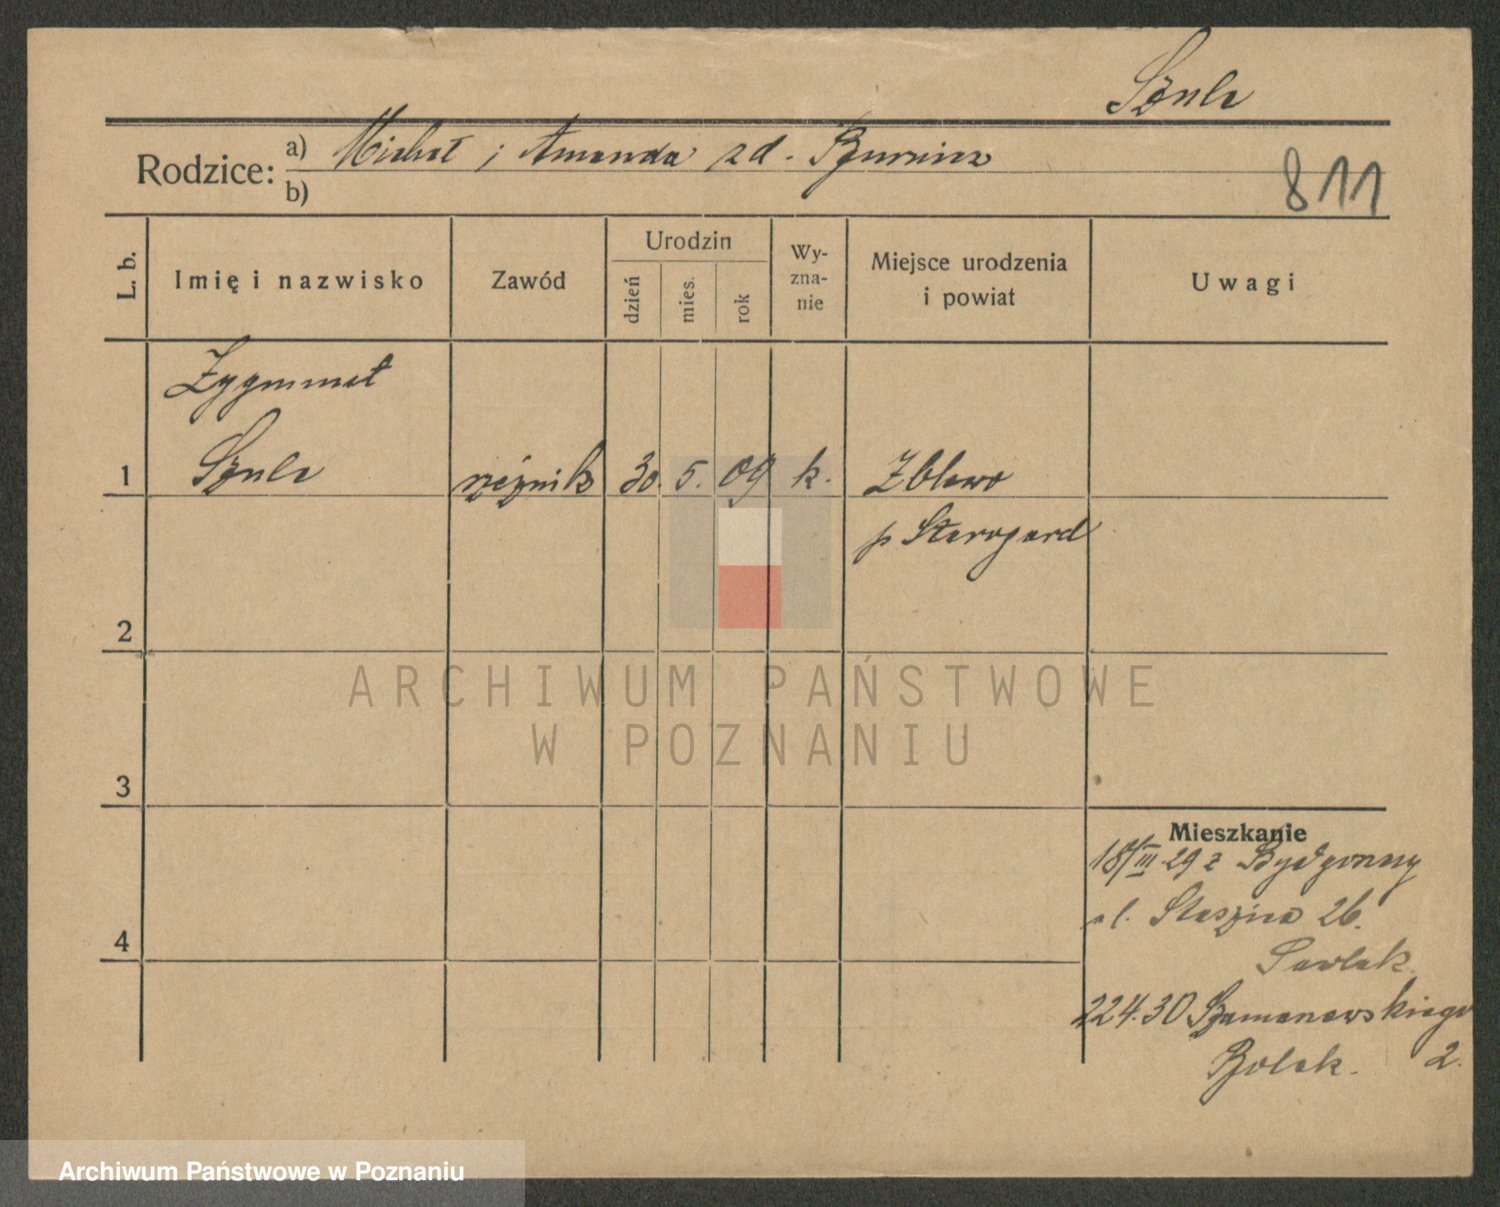 Szulc
Rodzice: a) Michał i Amanda zd.
b)
811
L. b.
Imię i nazwisko
Zawód
Urodzin
dzień
mies.
rok
Wy-
zna-
nie
Miejsce urodzenia
i powiat
Uwagi
Zygmunt
1 Szulc rzeźnik 30. 5. 09 k. Zblewo
p Starogard
2
3
4
Mieszkanie
18/III 29 z Bydgoszczy
ul. Staszica 26.
Pawlak.
22.4.30 Szamarzewskiego
2.
ARCHIWUM PAŃSTWOWE
W POZNANIU
Archiwum Państwowe w Poznaniu